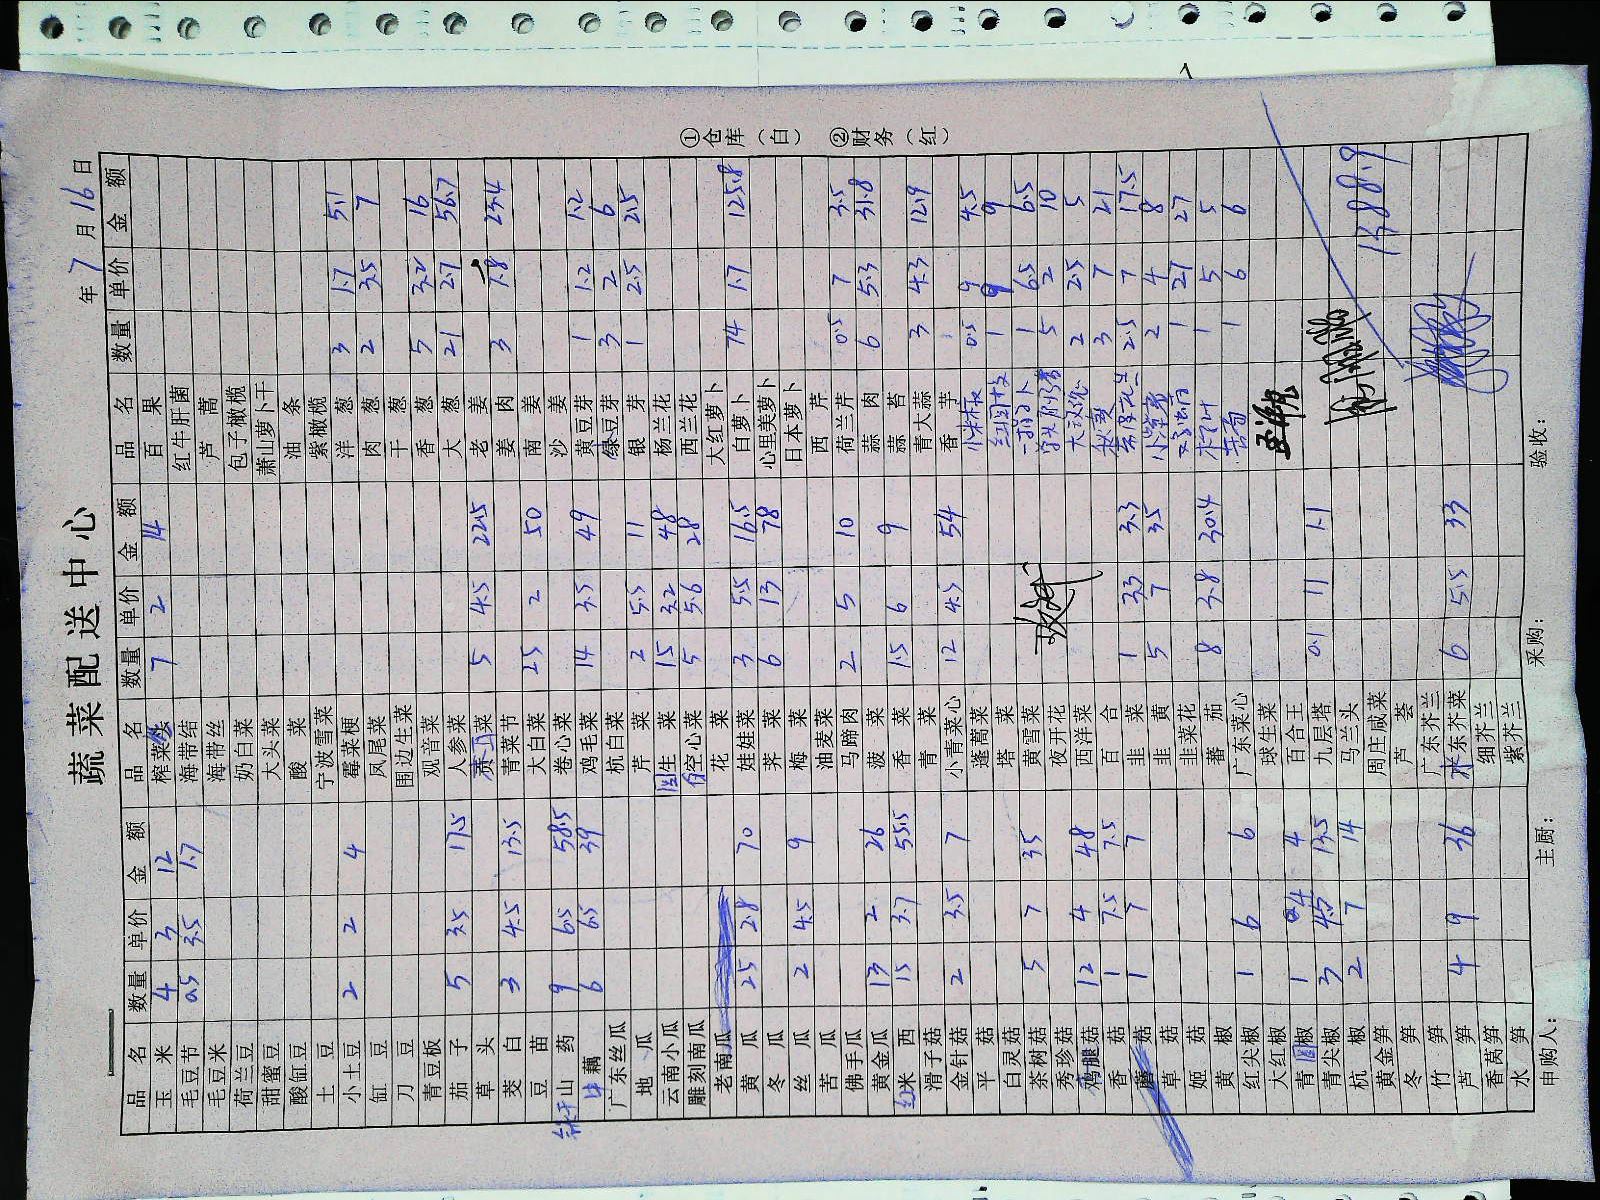 蔬菜配送中心
年 7 月 16 日
品名 数量 单价 金额 品名 数量 单价 金额 品名 数量 单价 金额
玉米 4 3 12 榨菜丝 7 2 14 百果
毛豆节 0.5 3.5 1.7 海带结 红牛肝菌
毛豆米 海带丝 芦蒿
荷兰豆 奶白菜 包子橄榄
甜蜜豆 大头菜 萧山萝卜干
酸缸豆 酸菜 油条
土豆 宁波雪菜 紫橄榄
小土豆 2 2 4 霉菜梗 洋葱 3 1.7 5.1
缸豆 凤尾菜 肉葱 2 3.5 7
刀豆 围边生菜 干葱
青豆板 观音菜 香葱 5 3.2 16
茄子 5 3.5 17.5 人参菜 大葱 21 2.7 56.7
草头 菜 5 4.5 22.5 老姜
茭白 3 4.5 13.5 青菜节 姜肉 3 7.8 23.4
豆苗 大白菜 25 2 50 南姜
铁干山药 9 6.5 58.5 卷心菜 沙姜
藕 6 6.5 39 鸡毛菜 14 3.5 49 黄豆芽 1 1.2 1.2
广东丝瓜 杭白菜 绿豆芽 3 2 6
地瓜 芹菜 2 5.5 11 银芽 1 2.5 2.5
云南小瓜 圆生菜 15 3.2 48 杨兰花
雕刻南瓜 空心菜 5 5.6 28 西兰花
老南瓜 花菜 大红萝卜
黄瓜 25 2.8 70 娃娃菜 3 5.5 16.5 白萝卜 74 1.7 125.8
冬瓜 荠菜 6 13 78 心里美萝卜
丝瓜 2 4.5 9 梅菜 日本萝卜
苦瓜 油麦菜 西芹
佛手瓜 马蹄肉 2 5 10 荷兰芹 0.5 7 3.5
黄金瓜 13 2 26 菠菜 蒜肉 6 5.3 31.8
红米西 15 3.7 55.5 香菜 1.5 6 9 蒜苔
滑子菇 青菜 青大蒜 3 4.3 12.9
金针菇 2 3.5 7 小青菜心 12 4.5 54 香芋
平菇 蓬蒿菜 小米椒 0.5 9 4.5
白灵菇 塔菜 红圆椒 1 9 9
茶树菇 5 7 35 黄雪菜 1 6.5 6.5
秀珍菇 夜开花 5 2 10
鸡腿菇 12 4 48 西洋菜 2 2.5 5
香菇 1 7.5 7.5 百合 3 7 21
蘑菇 1 7 7 韭菜 1 3.3 3.3 2.5 7 17.5
草菇 韭黄 5 7 35 2 4 8
姬菇 韭菜花 1 27 27
黄椒 蕃茄 8 3.8 30.4 1 5 5
红尖椒 1 6 6 广东菜心 1 6 6
大红椒 球生菜
青圆椒 1 4 4 百合王
青尖椒 3 4.5 13.5 九层塔 0.1 11 1.1
杭椒 2 7 14 马兰头
黄金笋 周庄咸菜 1388.9
冬笋 芦荟
竹笋 广东芥兰
芦笋 4 9 36 水东芥菜 6 5.5 33
香莴笋 细芥兰
水笋 紫芥兰
申购人： 主厨： 采购： 验收：
①仓库（白） ②财务（红）